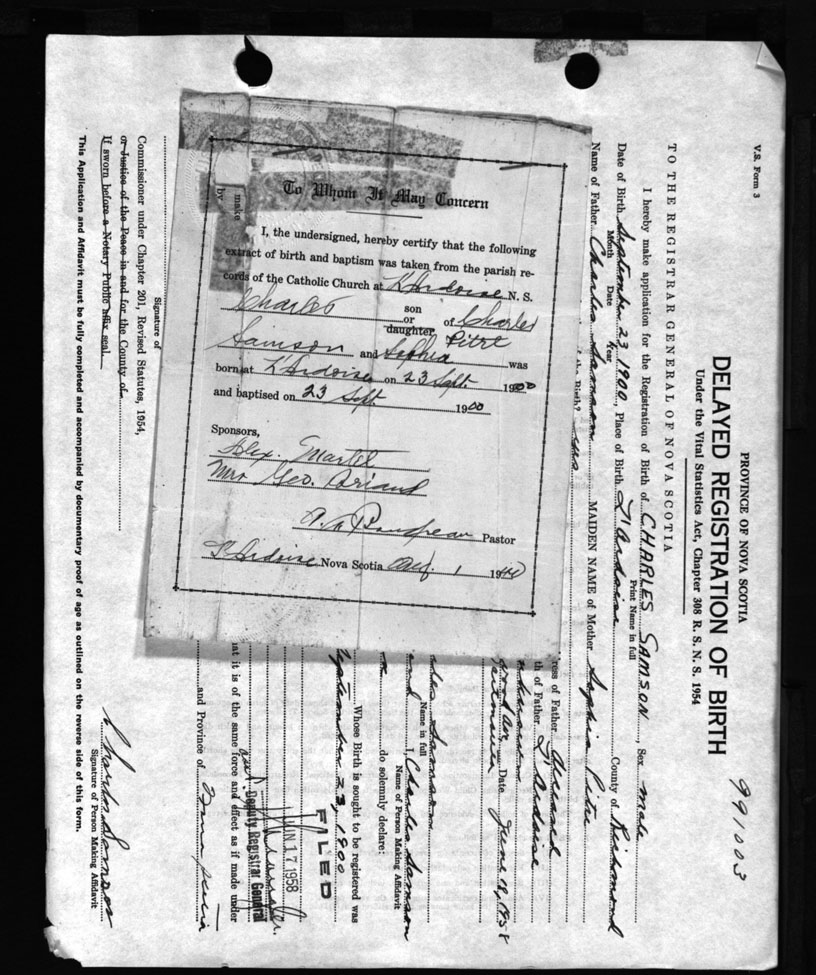 V.S. Form 3
PROVINCE OF NOVA SCOTIA
991003
DELAYED REGISTRATION OF BIRTH
Under the Vital Statistics Act, Chapter 308 R. S. N. S. 1954
TO THE REGISTRAR GENERAL OF NOVA SCOTIA
I hereby make application for the Registration of Birth of CHARLES SAMSON, Sex male
Print Name in full
Date of Birth September 23 1900, Place of Birth L'Ardoise County of Richmond
Month Date Year
Name of Father Charles Samson MAIDEN NAME of Mother Sophie Pitre
of the Birth? yes
ress of Father Deceased
th of Father L'Ardoise
Date June 12, 1958
Samson
Name in full
I, Charles Samson
Name of Person Making Affidavit
do solemnly declare:
Whose Birth is sought to be registered was
September 23, 1900
FILED
JUN 17 1958
Deputy Registrar General
at it is of the same force and effect as if made under
and Province of Nova Scotia
Charles Samson
Signature of Person Making Affidavit
Signature of
Commissioner under Chapter 201, Revised Statutes, 1954,
or Justice of the Peace in and for the County of
If sworn before a Notary Public affix seal.
This Application and Affidavit must be fully completed and accompanied by documentary proof of age as outlined on the reverse side of this form.
make
by
To Whom It May Concern
I, the undersigned, hereby certify that the following
extract of birth and baptism was taken from the parish re-
cords of the Catholic Church at L'Ardoise N. S.
Charles son or daughter of Charles
Samson and Sophia Pitre was
born at L'Ardoise on 23 Sept. 1900
and baptised on 23 Sept. 1900
Sponsors,
Alex. Martel
Mrs Geo. Briand
Pastor
L'Ardoise Nova Scotia Aug. 1 1940